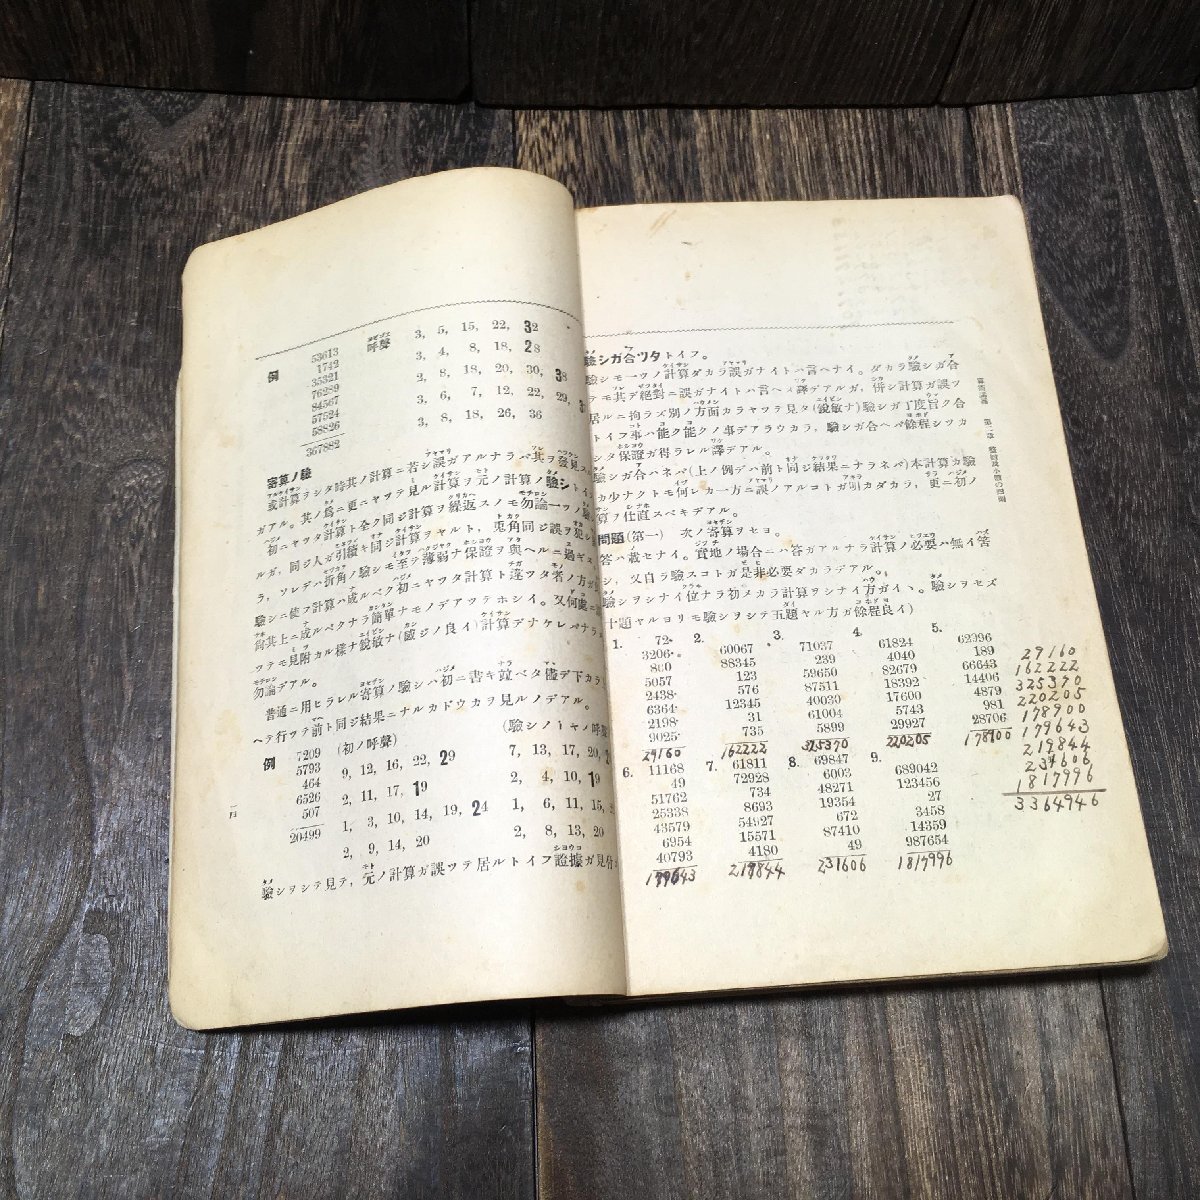 例
53613
1742
35321
76289
84567
57524
58826
367882
呼聲
3, 5, 15, 22, 32
3, 4, 8, 18, 28
2, 8, 18, 20, 30, 38
3, 6, 7, 12, 22, 29,
3, 8, 18, 26, 36
寄算ノ驗
或計算ヲシタ時其ノ計算ニ若シ誤ガアルナラバ其ヲ發見ス
ガアル。其ノ爲ニ更ニヤツテ見ル計算ヲ元ノ計算ノ驗シトイ
初ニヤツタ計算ト全ク同ジ計算ヲ繰返スノモ勿論一ツノ驗
ルガ、同ジ人ガ引續キ同ジ計算ヲヤルト、兎角同ジ誤ヲ犯シ
ラ、ソレデハ折角ノ驗シモ至ツテ薄弱ナ保證ヲ與ヘルニ過ギス
驗シニ使フ計算ハ成ルベク初ニヤツタ計算ト違ツタ者ノ方ガ
尙其上ニ成ルベクナラ簡單ナモノデアツテホシイ。又何處ニ
ツテモ見附カル樣ナ鋭敏ナ(感ジノ良イ)計算デナケレバナラ
勿論デアル。
普通ニ用ヒラレル寄算ノ驗シハ初ニ書キ竝ベタ儘デ下カラ
ヘテ行ツテ前ト同ジ結果ニナルカドウカヲ見ルノデアル。
例
7209
5793
464
6526
507
20499
(初ノ呼聲)
9, 12, 16, 22, 29
2, 11, 17, 19
1, 3, 10, 14, 19, 24
2, 9, 14, 20
(驗シノトキノ呼聲
7, 13, 17, 20,
2, 4, 10, 19
1, 6, 11, 15,
2, 8, 13, 20
驗シヲシテ見テ、元ノ計算ガ誤ツテ居ルトイフ證據ガ見付
驗シガ合ツタトイフ。
驗シモ一ツノ計算ダカラ誤ガナイトハ言ヘナイ。ダカラ驗シガ合
テモ其デ絕對ニ誤ガナイトハ言ヘイ譯デアルガ、併シ計算ガ誤ツ
居ルニ拘ラズ別ノ方面カラヤツテ見タ(鋭敏ナ)驗シガ丁度旨ク合
トイフ事ハ能ク能クノ事デアラウカラ、驗シガ合ヘバ餘程シツカ
シタ保證ガ得ラレル譯デアル。
驗シガ合ハネバ(上ノ例デハ前ト同ジ結果ニナラネバ)本計算カ驗
カ少ナクトモ何レカ一方ニ誤ノアルコトガ明カダカラ、更ニ初ノ
算ヲ仕直スベキデアル。
問題(第一) 次ノ寄算ヲセヨ。
答ハ載セナイ。實地ノ場合ニハ答ガアルナラ計算ノ必要ハ無イ答
シ、又自ラ驗スコトガ是非必要ダカラデアル。
驗シヲシナイ位ナラ初メカラ計算ヲシナイ方ガイヽ。驗シヲセズ
十題ヤルヨリモ驗シヲシテ五題ヤル方ガ餘程良イ)
1.
72
3206
860
5057
2438
6364
2198
9025
29160
2.
60067
88345
123
576
12345
31
735
162222
3.
71037
239
59650
87511
40030
61004
5899
325370
4.
61824
4040
82679
18392
17600
5743
29927
220205
5.
62996
189
66643
14406
4879
981
28706
178900
6.
11168
49
51762
25338
43579
6954
40793
179643
7.
61811
72928
734
8693
54927
15571
4180
219844
8.
69847
6003
48271
19354
672
87410
49
231606
9.
689042
123456
27
3458
14359
987654
1817996
29160
162222
325370
220205
178900
179643
219844
231606
1817996
3364946